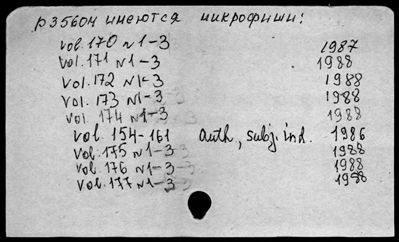 р35604 имеются микрофиши:
vol. 170 N1-3 1987
vol. 171 N1-3 1988
vol. 172 N1-3 1988
vol. 173 N1-3 1988
vol. 174 N1-3 1988
vol. 154-161 auth, subj. ind. 1986
vol. 175 N1-3 1988
vol. 176 N1-3 1988
vol. 177 N1-3 1988